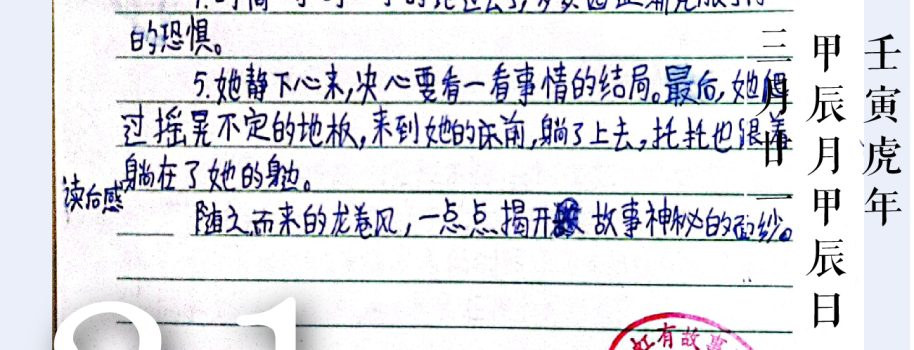 的恐惧。
5.她静下心来,决心要看一看事情的结局。最后,她
过摇晃不定的地板,来到她的床前,躺了上去,托托也跟着
躺在了她的身边。
读后感
随之而来的龙卷风,一点点揭开 故事神秘的面纱。
壬寅虎年
甲辰月甲辰日
三月廿一
21
有故事